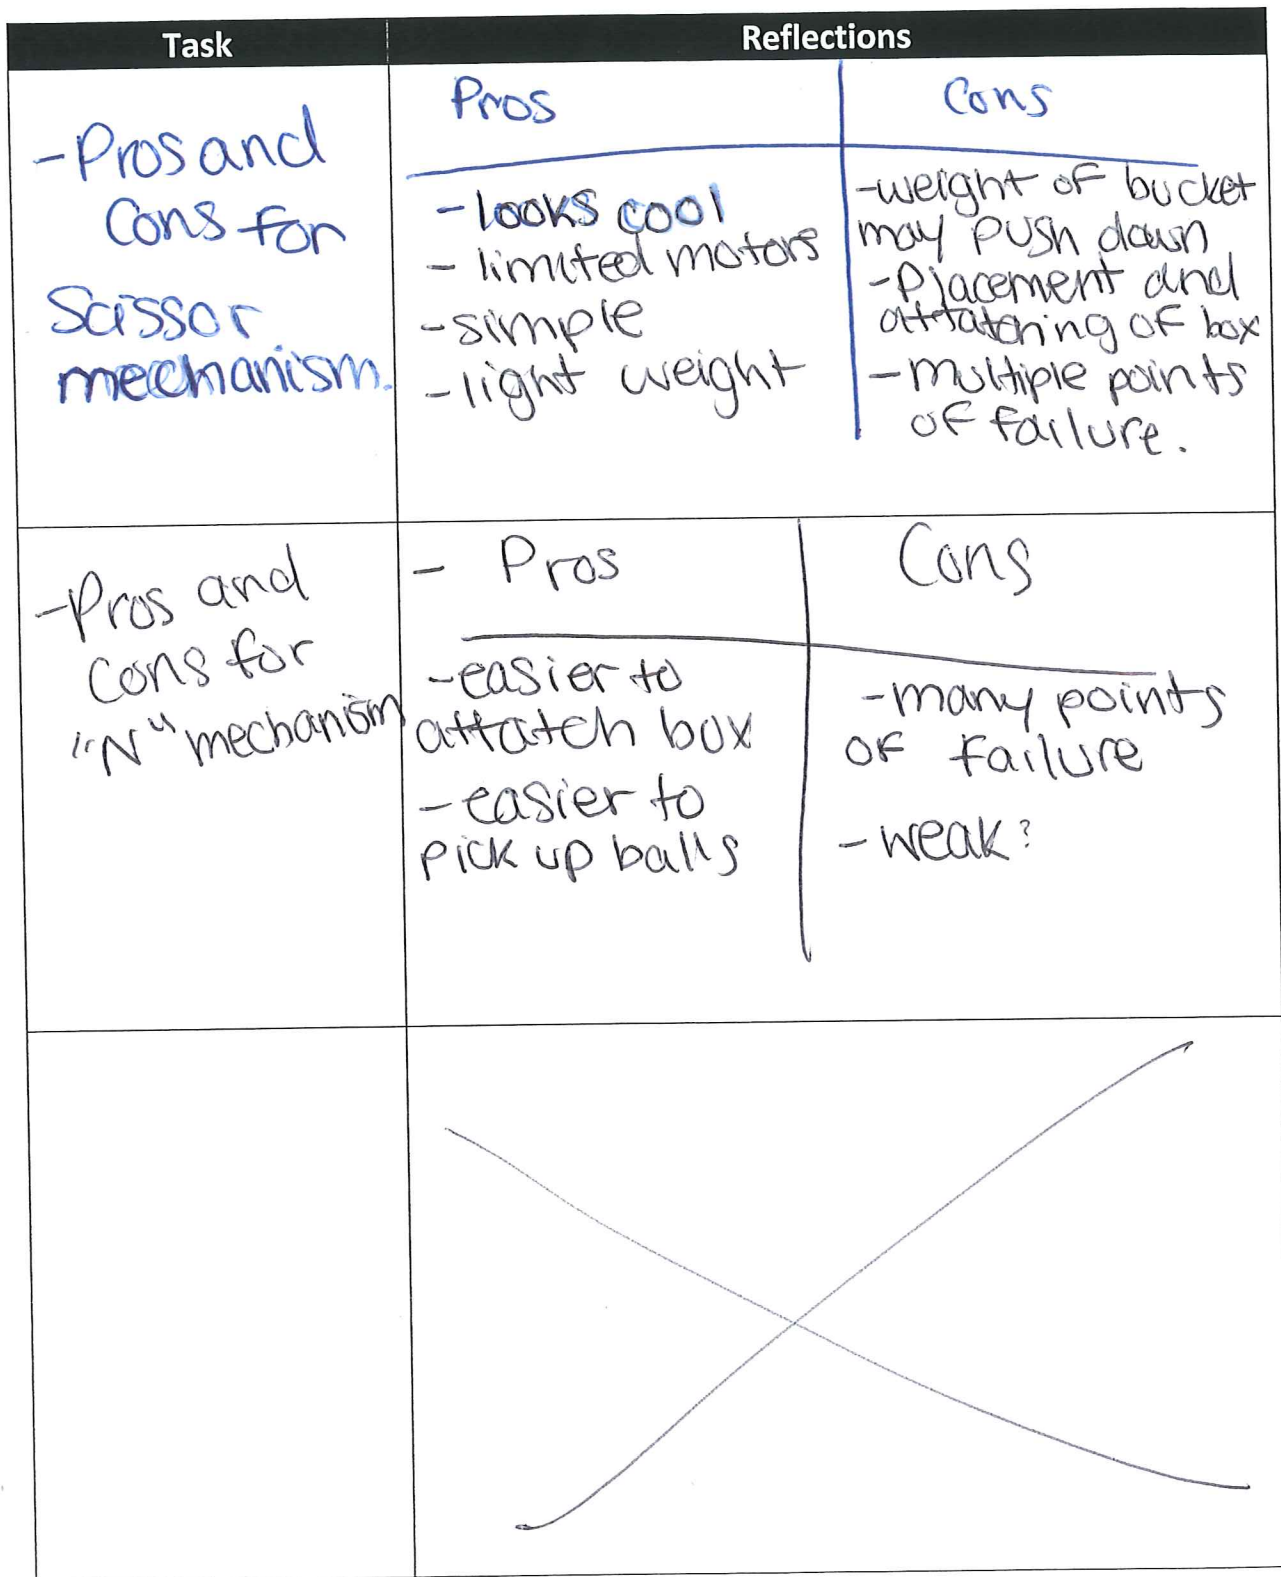 Task
Reflections
-Pros and
Cons for
Scissor
mechanism.
Pros
Cons
- looks cool
- limited motors
- simple
- light weight
- weight of bucket
may push down
- Placement and
attatching of box
- multiple points
of failure.
- Pros and
Cons for
"N" mechanism
- Pros
Cons
- easier to
attatch box
- easier to
pick up balls
- many points
of failure
- weak?